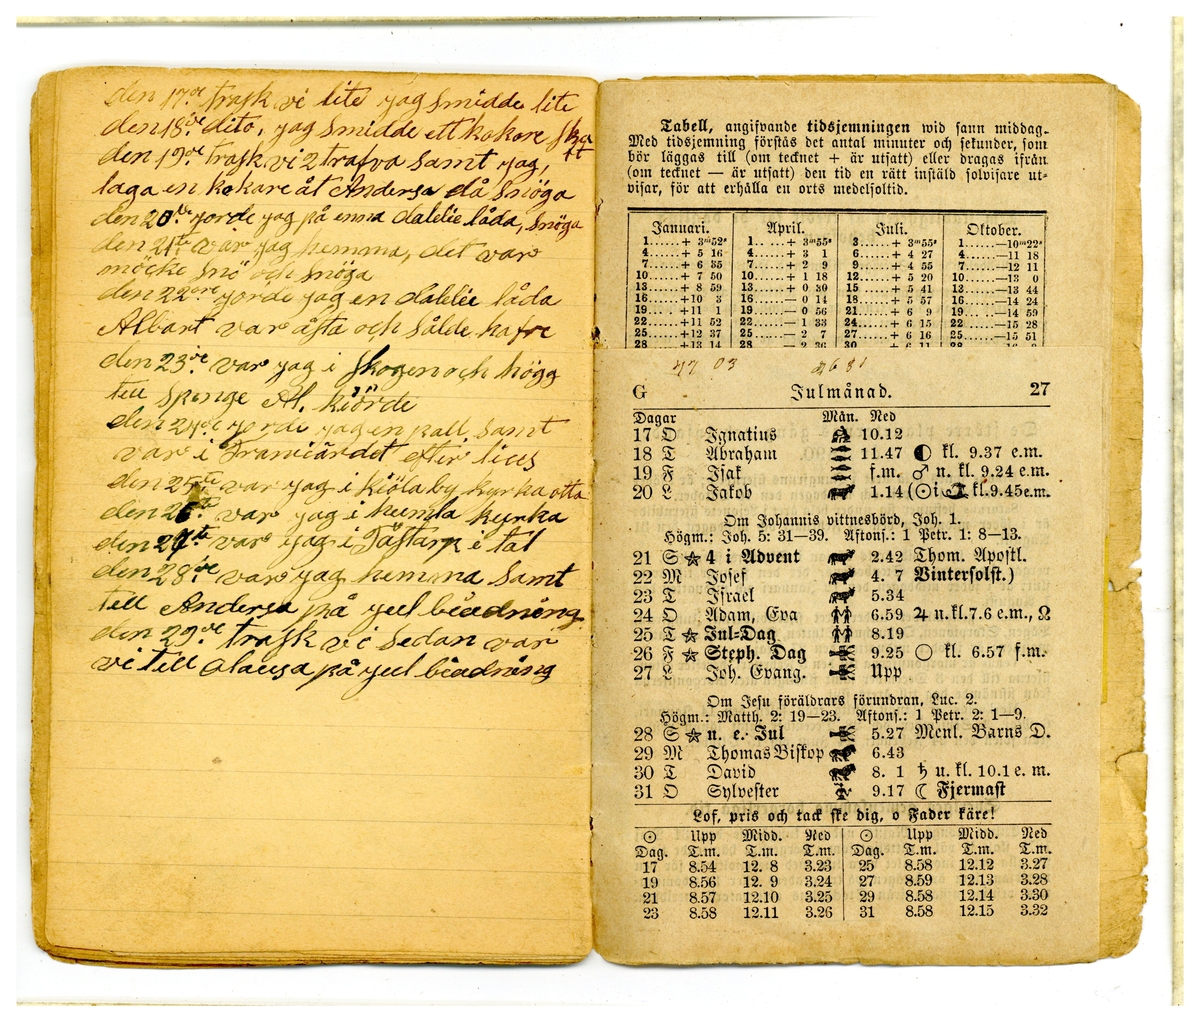 den 17de trask vi lite jag smidde lite
den 18de dito, jag smidde ett kokare ska
ft
den 19de trask vi 2 trafva samt jag,
laga en kokare åt Andersa då snöga
den 20de jorde jag på enna låda, snöga
den 21te var jag hemma, det var
möcke snö och snöga
den 22dre jorde jag en låda
Albart var åsta och sålde hafre
den 23de var jag i skogen och högg
till Al. kiörde
den 24de jorde jag en pall samt
var i efter
den 25te var jag i kiölaby kyrka otta
den 26te var jag i kumla kyrka
den 27te var jag i Tåstarp i tal
den 28de var jag hemma samt
till Andersa på juel biudning
den 29de trask vi sedan var
vi till Olausa på juel biudning
Tabell, angifvande tidsjemningen wid sann middag.
Med tidsjemning förstås det antal minuter och sekunder, som
bör läggas till (om tecknet + är utsatt) eller dragas ifrån
(om tecknet — är utsatt) den tid en rätt instäld solvisare ut-
visar, för att erhålla en orts medelsoltid.
Januari. April. Juli. Oktober.
1......+ 3m52s 1.....+ 3m55s 3......+ 3m55s 1......—10m22s
4......+ 5 16 4......+ 3 1 6......+ 4 27 4......—11 18
7......+ 6 35 7......+ 2 9 9......+ 4 55 7......—12 11
10......+ 7 50 10......+ 1 18 12......+ 5 20 10......—13 0
13......+ 8 59 13......+ 0 30 15......+ 5 41 13......—13 44
16......+10 3 16......— 0 14 18......+ 5 57 16......—14 24
19......+11 1 19......— 0 56 21......+ 6 9 19......—14 59
22......+11 52 22......— 1 33 24......+ 6 15 22......—15 28
25......+12 37 25......— 2 7 27......+ 6 16 25......—15 51
28......+13 14 28......— 2 36 30......+ 6 11 28
47 03 2681
G Julmånad. 27
Dagar Mån. Ned
17 O Ignatius 10.12
18 T Abraham 11.47 ◐ kl. 9.37 e.m.
19 F Isak f.m. ♂ n. kl. 9.24 e.m.
20 L Jakob 1.14 (☉ i ♑ kl. 9.45 e.m.
Om Johannis vittnesbörd, Joh. 1.
Högm.: Joh. 5: 31—39. Aftons.: 1 Petr. 1: 8—13.
21 S ☆ 4 i Advent 2.42 Thom. Apostl.
22 M Josef 4. 7 Vintersolst.)
23 T Israel 5.34
24 O Adam, Eva 6.59 ♃ u. kl. 7.6 e.m., ☊
25 T ☆ Jul-Dag 8.19
26 F ☆ Steph. Dag 9.25 ○ kl. 6.57 f.m.
27 L Joh. Evang. Upp
Om Jesu föräldrars förundran, Luc. 2.
Högm.: Matth. 2: 19—23. Aftons.: 1 Petr. 2: 1—9.
28 S ☆ n. e. Jul 5.27 Menl. Barns D.
29 M Thomas Biskop 6.43
30 T David 8. 1 ♄ u. kl. 10.1 e. m.
31 O Sylvester 9.17 ☾ Fjermast
Lof, pris och tack ske dig, o Fader käre!
☉ Upp Midd. Ned ☉ Upp Midd. Ned
Dag. T.m. T.m. T.m. Dag. T.m. T.m. T.m.
17 8.54 12. 8 3.23 25 8.58 12.12 3.27
19 8.56 12. 9 3.24 27 8.59 12.13 3.28
21 8.57 12.10 3.25 29 8.58 12.14 3.30
23 8.58 12.11 3.26 31 8.58 12.15 3.32